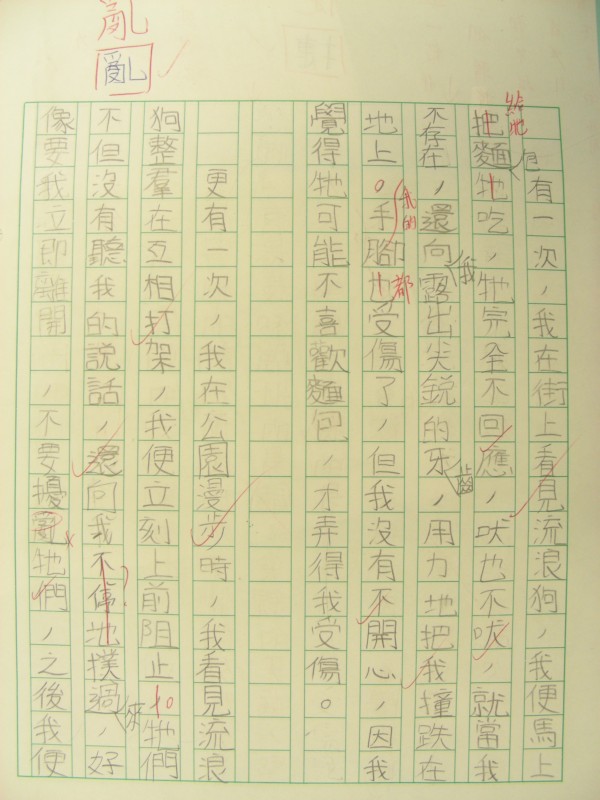 亂
亂
有一次，我在街上看見流浪狗，我便馬上
給牠
包
把麵牠吃，牠完全不回應，吠也不吠，就當我
我
齒
不存在，還向露出尖銳的牙，用力地把我撞跌在
我的
都
地上。手腳也受傷了，但我沒有不開心，因我
覺得牠可能不喜歡麵包，才弄得我受傷。
更有一次，我在公園漫步時，我看見流浪
狗整羣在互相打架，我便立刻上前阻止牠們
來
不但沒有聽我的說話，還向我不停地撲過，好
像要我立即離開，不要擾亂牠們，之後我便